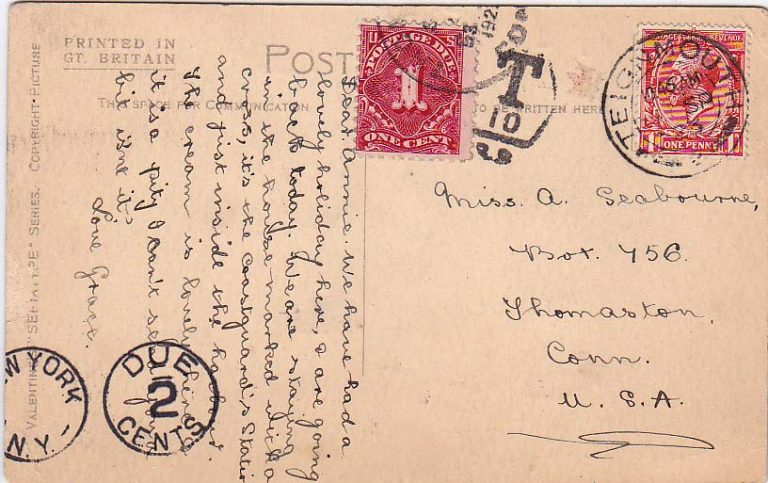 PRINTED IN
GT. BRITAIN
POST
THE SPACE FOR COMMUNICATION
TO BE WRITTEN HERE
VALENTINE'S "SEPIATYPE" SERIES. COPYRIGHT PICTURE
Dear Annie. We have had a
lovely holiday here, & are going
back today. We are staying
in the house marked with a
cross, it's the Coastguard's Station
and just inside the harbour.
The cream is lovely here &
it's a pity I can't send you a
bit isn't it?
Love Grace.
POSTAGE DUE
1
ONE CENT
T
10
192
TEIGNMOUTH
POSTAGE REVENUE
ONE PENNY
Miss. A. Seabourne,
Box. 756.
Thomaston.
Conn.
U. S. A.
NEW YORK
N.Y.
DUE
2
CENTS